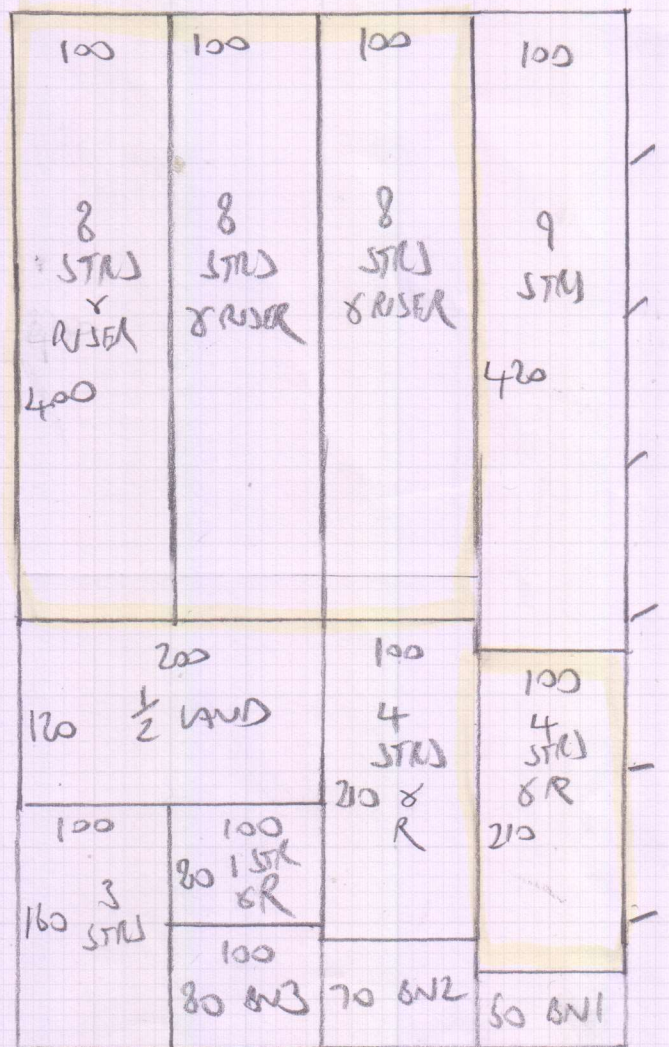 100 100 100 100
8
STRS
&
RISER
400
8
STRS
& RISER
8
STRS
& RISER
9
STRS
420
200
120 ½ LAND
100
4
STRS
210 &
R
100
4
STRS
& R
210
100
160 3
STRS
100
80 1 STR
& R
100
80 BN3
70 BN2
50 BN1